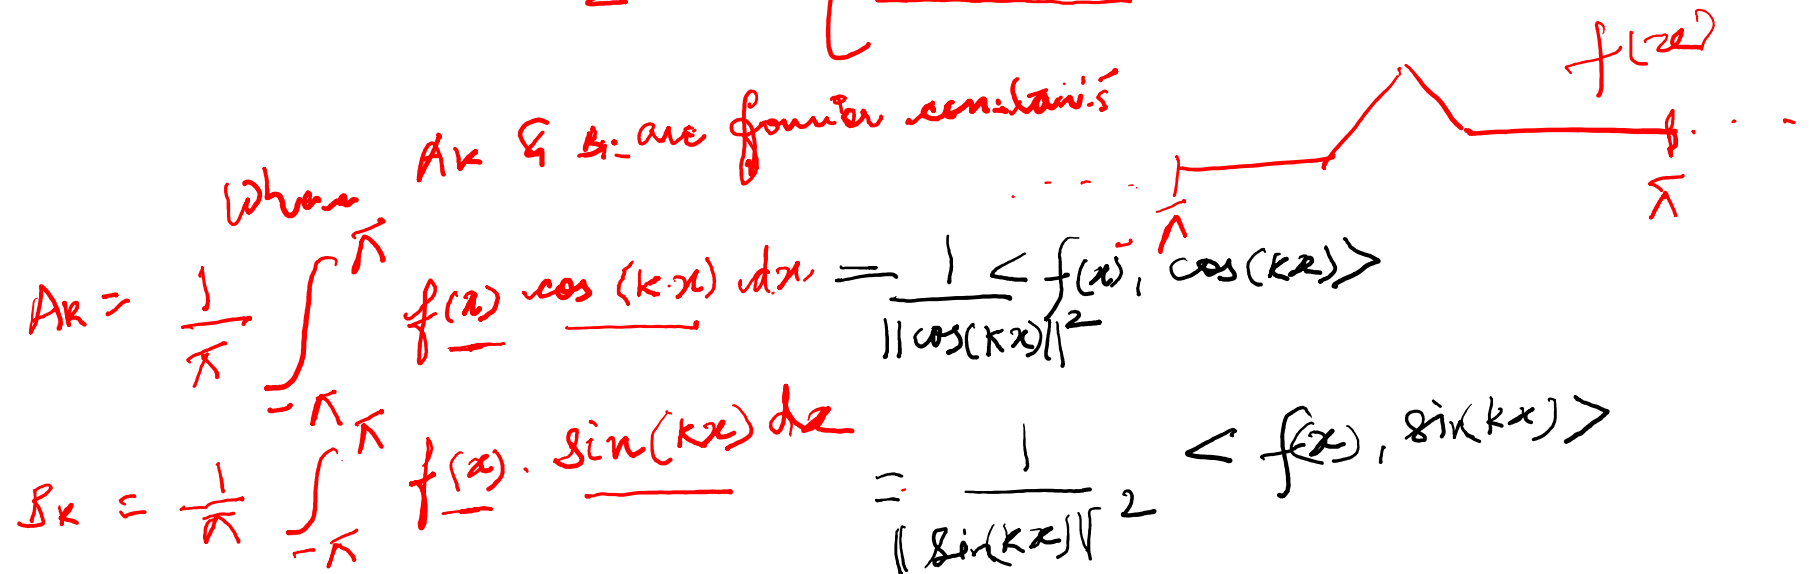 f(x)
AK & BK are fourier constants
where
π π
AK = 1/π ∫_{-π}^{π} f(x) cos (k.x) dx = 1/||cos(kx)||² < f(x), cos(kx) >
BK = 1/π ∫_{-π}^{π} f(x). sin(kx) dx = 1/||sin(kx)||² < f(x), sin(kx) >